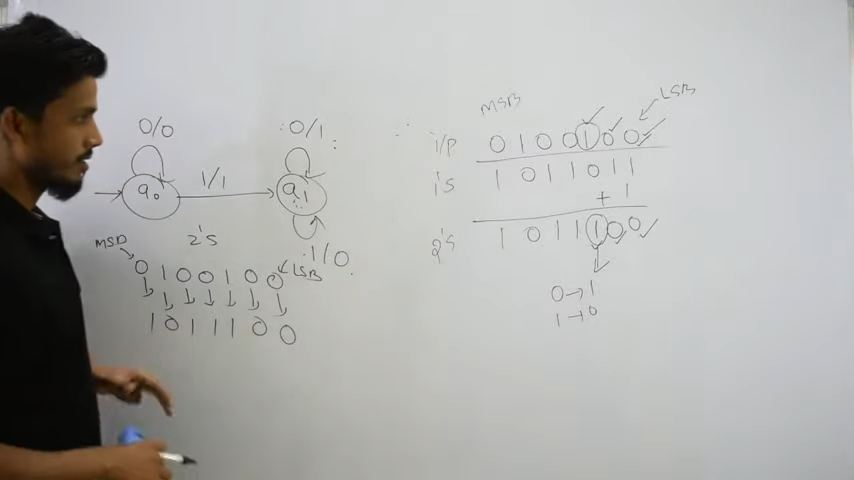 0/0
:0/1:
q0
1/1
q1
1/0
2's
MSD
0 1 0 0 1 0 0
LSB
1 0 1 1 1 0 0
MSB
LSB
i/p 0 1 0 0 1 0 0
1's 1 0 1 1 0 1 1
+ 1
2's 1 0 1 1 1 0 0
0→1
1→0